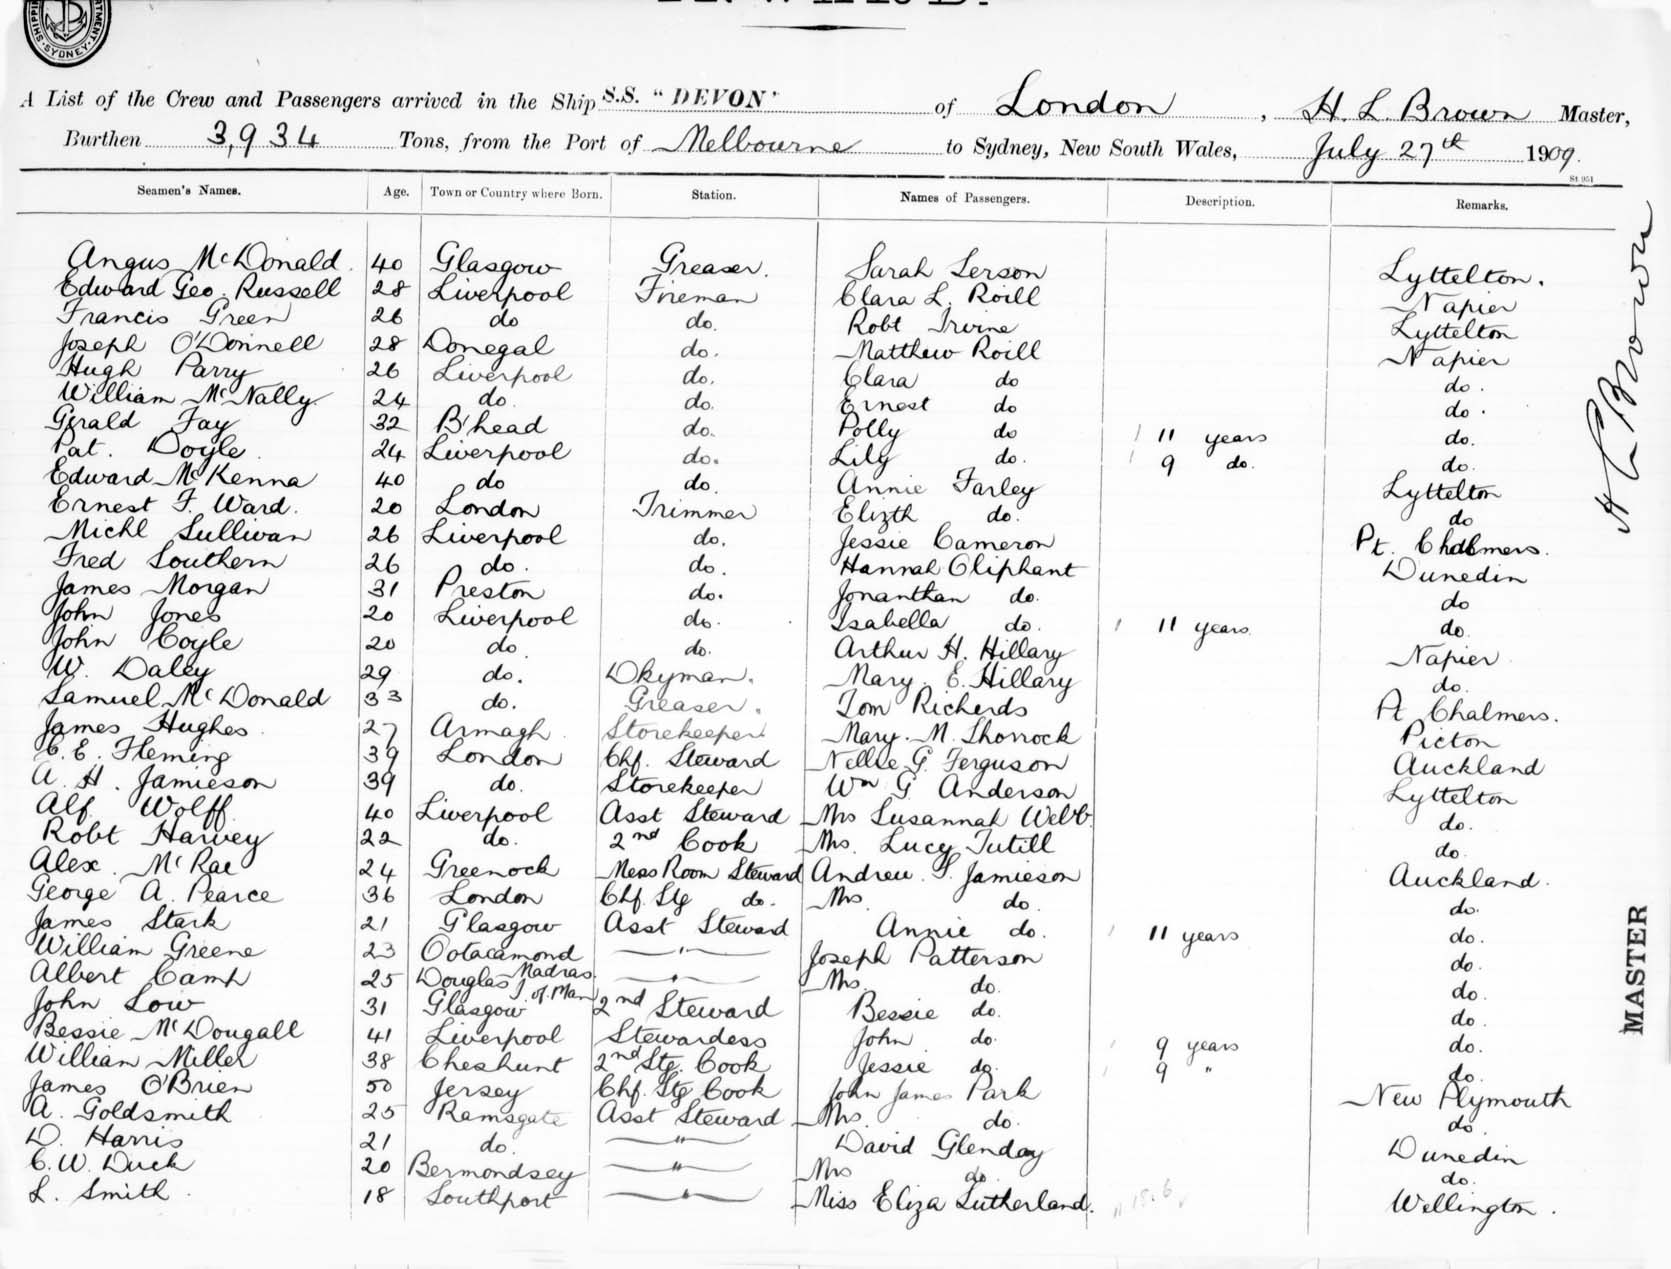 SHIPPING DEPARTMENT SYDNEY
A List of the Crew and Passengers arrived in the Ship S.S. "DEVON" of London, H. L. Brown Master,
Burthen 3,934 Tons, from the Port of Melbourne to Sydney, New South Wales, July 27th 1909.
St 951
Seamen's Names. Age. Town or Country where Born. Station. Names of Passengers. Description. Remarks.
Angus McDonald. 40 Glasgow Greaser. Sarah Serson Lyttelton.
Edward Geo. Russell 28 Liverpool Fireman Clara L. Roill Napier
Francis Green 26 do do. Robt Irvine Lyttelton
Joseph O'Donnell 28 Donegal do. Matthew Roill Napier
Hugh Parry 26 Liverpool do. Clara do do.
William McNally 24 do. do. Ernest do do.
Gerald Fay 32 B'head do. Polly do 11 years do.
Pat. Doyle 24 Liverpool do. Lily do. 9 do. do.
Edward McKenna 40 do do. Annie Farley Lyttelton
Ernest F. Ward. 20 London Trimmer Elizth do. do
Michl Sullivan 26 Liverpool do. Jessie Cameron Pt. Chalmers.
Fred Southern 26 do. do. Hannah Oliphant Dunedin
James Morgan 31 Preston do. Jonanthan do. do
John Jones 20 Liverpool do. Isabella do. 11 years. do.
John Coyle 20 do. do. Arthur H. Hillary Napier
W. Daley 29 do. Dkyman. Mary. E. Hillary do.
Samuel McDonald 33 do. Greaser. Tom Richerds Pt Chalmers.
James Hughes 27 Armagh. Storekeeper Mary. M. Shorrock Picton
C. E. Fleming 39 London Chf. Steward Nellie G. Ferguson Auckland
A. H. Jamieson 39 do. Storekeeper Wm G. Anderson Lyttelton
Alf. Wolff 40 Liverpool Asst Steward Mrs Susannah Webb do.
Robt Harvey 22 do. 2nd Cook Mrs. Lucy Tutill do.
Alex. McRae 24 Greenock Mess Room Steward Andrew. S. Jamieson Auckland.
George A. Pearce 36 London Chf. Stg do. Mrs. do. do.
James Stark 21 Glasgow Asst Steward Annie do. 11 years do.
William Greene 23 Ootacamond Madras. " Joseph Patterson do.
Albert Camp 25 Douglas I. of. Man " Mrs. do. do.
John Low 31 Glasgow 2nd Steward Bessie do. do.
Bessie McDougall 41 Liverpool Stewardess John do. 9 years do.
William Miller 38 Cheshunt 2nd Stg. Cook Jessie do. 9 " do.
James O'Brien 50 Jersey Chf. Stg Cook John James Park New Plymouth
A. Goldsmith 25 Ramsgate Asst Steward Mrs. do. do.
D. Harris 21 do. " David Glenday Dunedin
C. W. Duck 20 Bermondsey " Mrs do. do.
L. Smith. 18 Southport " Miss Eliza Sutherland. Wellington.
H L Brown
MASTER